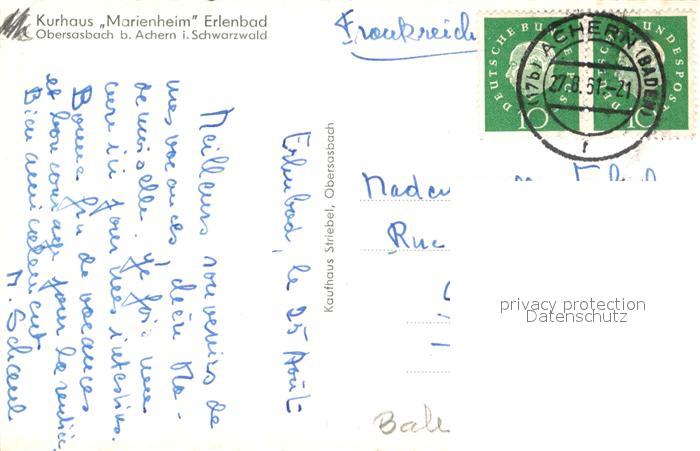 Kurhaus „Marienheim" Erlenbad
Obersasbach b. Achern i. Schwarzwald
Frankreich
DEUTSCHE BUNDESPOST
10
DEUTSCHE BUNDESPOST
10
(17b) ACHERN (BADEN)
27.8.61-21
f
Erlenbad, le 25 Août
Meilleurs souvenirs de
mes vacances, chère Ma-
demoiselle. Je fais une
cure in
Bonne fin de vacances
et bon courage pour la rentrée.
Bien amicalement
M. Schaul
Kaufhaus Striebel, Obersasbach
Rue
privacy protection
Datenschutz